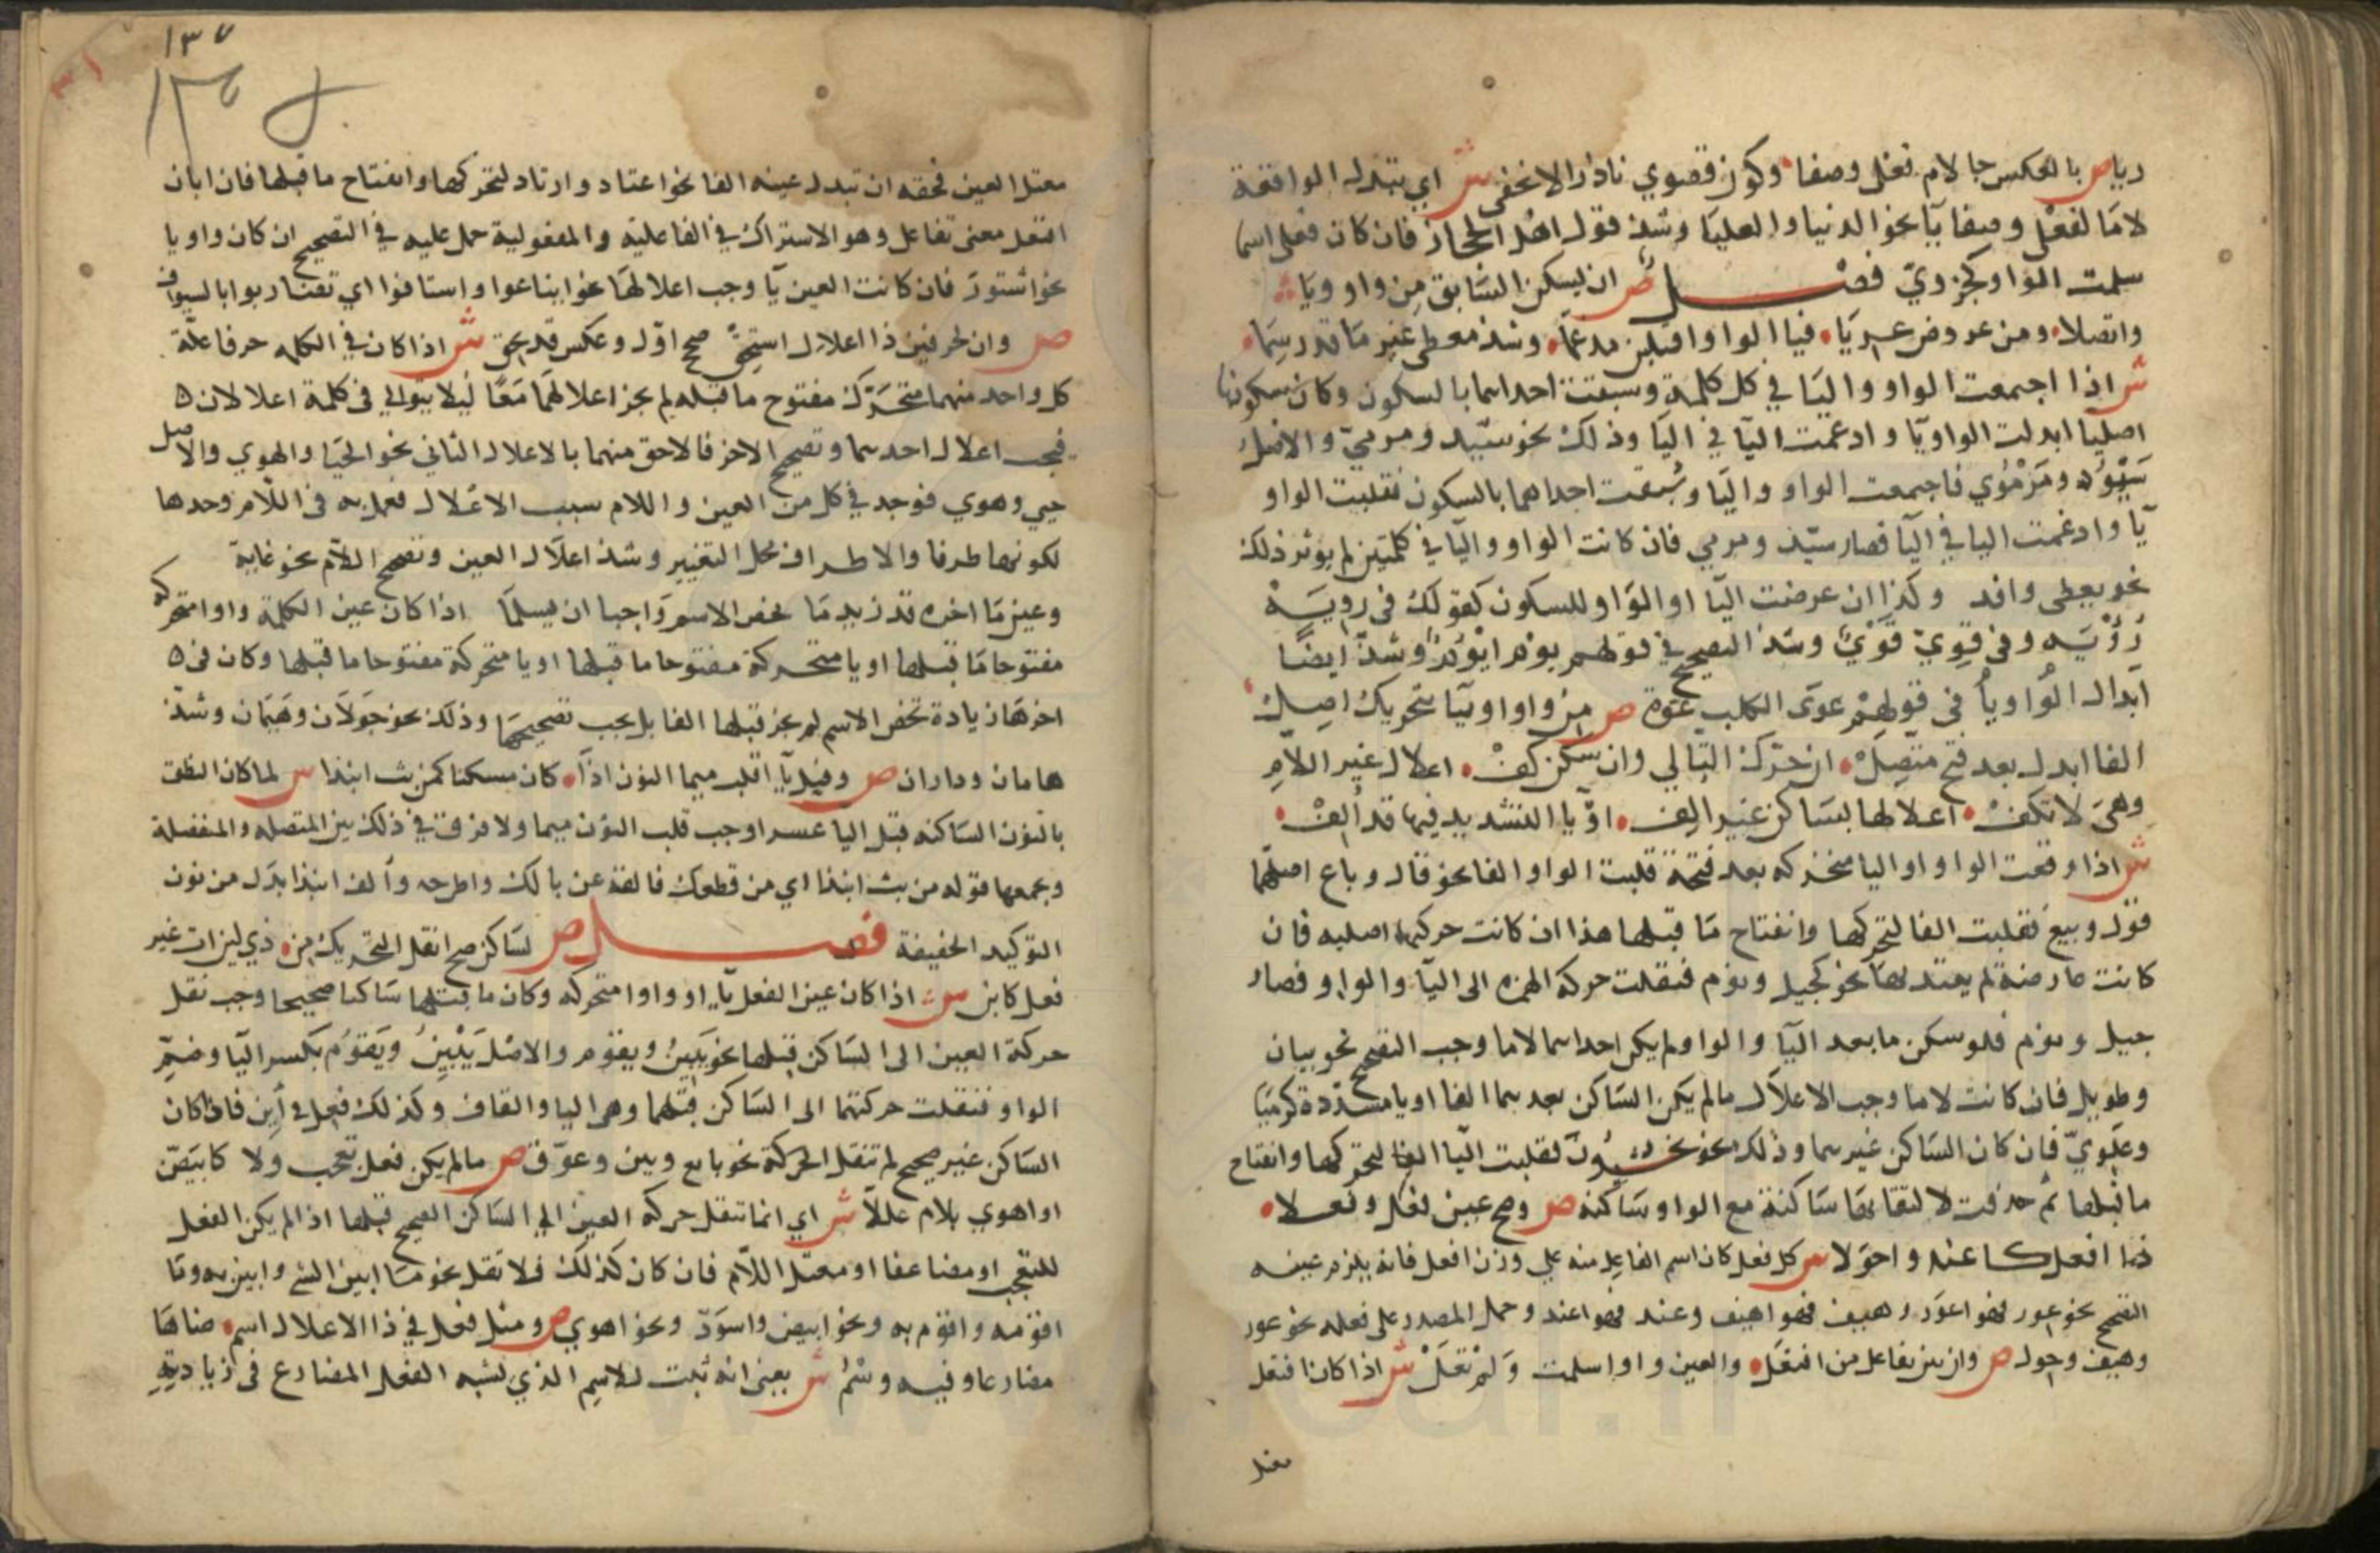 ريا ص بالعكس جا لام فعلى وصفا وكون قصوي نادرا لا يخفى ش اي تبدل الواو الواقعة
لاما لفعلى وصفا يآ نحو الدنيا والعليا وشذ قول اهل الحجاز فان كان فعلى اسما
سلمت الواو كحزوي فصل ص ان يسكن السابق من واو ويا
واتصلا ومن عروض عريا فيا الواو اقلبن مدغما وشذ معطى غير ما قد رسما
ش اذا اجتمعت الواو واليا في كل كلمة وسبقت احداهما بالسكون وكان سكونها
اصليا ابدلت الواو يآ وادغمت اليآ في اليآ وذلك نحو سيد ومرمي والاصل
سَيْوِد ومَرْمُوي فاجتمعت الواو واليآ وسُبقت احداهما بالسكون فقلبت الواو
يآ وادغمت اليا في اليآ فصار سيد ومرمي فان كانت الواو واليآ في كلمتين لم يوثر ذلك
نحو يعطى وافد وكذا ان عرضت اليآ او الواو للسكون كقولك فى رويـة
رُؤْيَه وفى قوِيَ قَوْيَ وشذ التصحيح في قولهم يوم ايْوَم وشذ ايضًا
ابدال الواو يآ فى قولهم عوى الكلب عَوّة ص من واو او يآ بتحريك اصل
الفا ابدل بعد فتح متصل ان حرك التالي وان سكن كف اعلال غير اللام
وهي لا تكف اعلالها بساكن غير الف او يا التشديد فيها قد ألف
ش اذا وقعت الواو او اليا متحركه بعد فتحة قلبت الواو الفا نحو قال وباع اصلهما
قوَل وبيَع فقلبت الفا لتحركها وانفتاح ما قبلها هذا ان كانت حركتها اصليه فان
كانت عارضة لم يعتد بها نحو كجيل وتوم فنقلت حركه الهمزه الى اليآ والواو فصار
جيل وتوم فلو سكن ما بعد اليآ والواو ولم يكن احداهما لاما وجب التصحيح نحو بيان
وطويل فان كانت لاما وجب الاعلال ما لم يكن الساكن بعدهما الفا او يا مشدّدة كرميا
وعلويّ فان كان الساكن غيرهما وذلك نحو يخشيون فقلبت اليآ الفا لتحركها وانفتاح
ما قبلها ثم حذفت لالتقائها ساكنة مع الواو ساكنه ص وصح عين فعل وفعلا
ذا افعل كاغيد واحولا ش كل فعل كان اسم الفاعل منه علي وزن افعل فانه يلزم عينه
التصحيح نحو عور فهو اعور وهيف فهو اهيف وغيد فهو اغيد وحمل المصدر على فعله نحو عور
وهيف وحول ص وان يبن تفاعل من افتعل والعين واو سلمت ولم تعل ش اذا كان افتعل
معتل
معتل العين فحقه ان تبدل عينه الفا نحو اعتاد وارتاد لتحركها وانفتاح ما قبلها فان ابان
افتعل معنى تفاعل وهو الاشتراك في الفاعلية والمفعولية حمل عليه في التصحيح ان كان واويا
نحو اشتورَ فان كانت العين يآ وجب اعلالها نحو ابتاعوا واستافوا اي تضاربوا بالسيوف
ص وان لحرفين ذا الاعلال استحق صحح اول وعكس قد يحق ش اذا كان في الكلمه حرفا علّة
كل واحد منهما متحرك مفتوح ما قبله لم يجز اعلالهما معًا ليلا يتوالي فى كلمة اعلالان
فيجب اعلال احدهما وتصحيح الاخر فالاحق منهما بالاعلال الثاني نحو الحيا والهوي والاصل
حيي وهوي فوجد في كل من العين واللام سبب الاعلال فعمل به فى اللام وحدها
لكونها طرفا والاطراف محل التغيير وشذ اعلال العين وتصحيح اللام نحو غاية
وعين ما اخره قد زيد ما يخص الاسم واجبا ان يسلما اذا كان عين الكلمة واوا متحركه
مفتوحا ما قبلها او يا متحركة مفتوحا ما قبلها او يا متحركة مفتوحا ما قبلها وكان فى
اخرها زيادة تخص الاسم لم يجز قبلها الفا بل يجب تصحيحها وذلك نحو جَوَلَان وهَيَمَان وشذ
هامان وداران ص وقبل با اقلب ميما النون اذا كان مسكنا كمن بت انبذا ش لما كان النطق
بالنون الساكنه قبل اليا عسر اوجب قلب النون ميما ولا فرق في ذلك بين المتصله والمنفصلة
وجمعها قوله من بت انبذا اي من قطعك فالقه عن بالك واطرحه وألف انبذا بدل من نون
التوكيد الخفيفة فصل ص لساكن صح انقل التحريك من ذي لين ات عين
فعل كابن ش اذا كان عين الفعل يآ او واوا متحركه وكان ما قبلها ساكنا صحيحا وجب نقل
حركة العين الى الساكن قبلها نحو يَبِينُ ويقوم والاصل يَبْيِنُ ويَقْوُم بكسر اليآ وضمّ
الواو فنقلت حركتهما الى الساكن قبلهما وهو اليا والقاف وكذلك فعل في أبن فان كان
الساكن غير صحيح لم تنقل الحركة نحو بايع وبين وعوّق ص ما لم يكن فعل تعجب ولا كابيضّ
او اهوي بلام عللا ش اي انما تنقل حركه العين الي الساكن الصحيح قبلها اذا لم يكن الفعل
للتعجب او مضاعفا او معتل اللام فان كان كذلك فلا نقل نحو ما ابين الشي وابين به وما
اقومه واقوم به ونحو ابيض واسودّ ونحو اهوي ص ومثل فعل في ذا الاعلال اسم ضاها
مضارعا وفيه وسْمُ ش يعني انه ثبت للاسم الذي يشبه الفعل المضارع فى زيادته